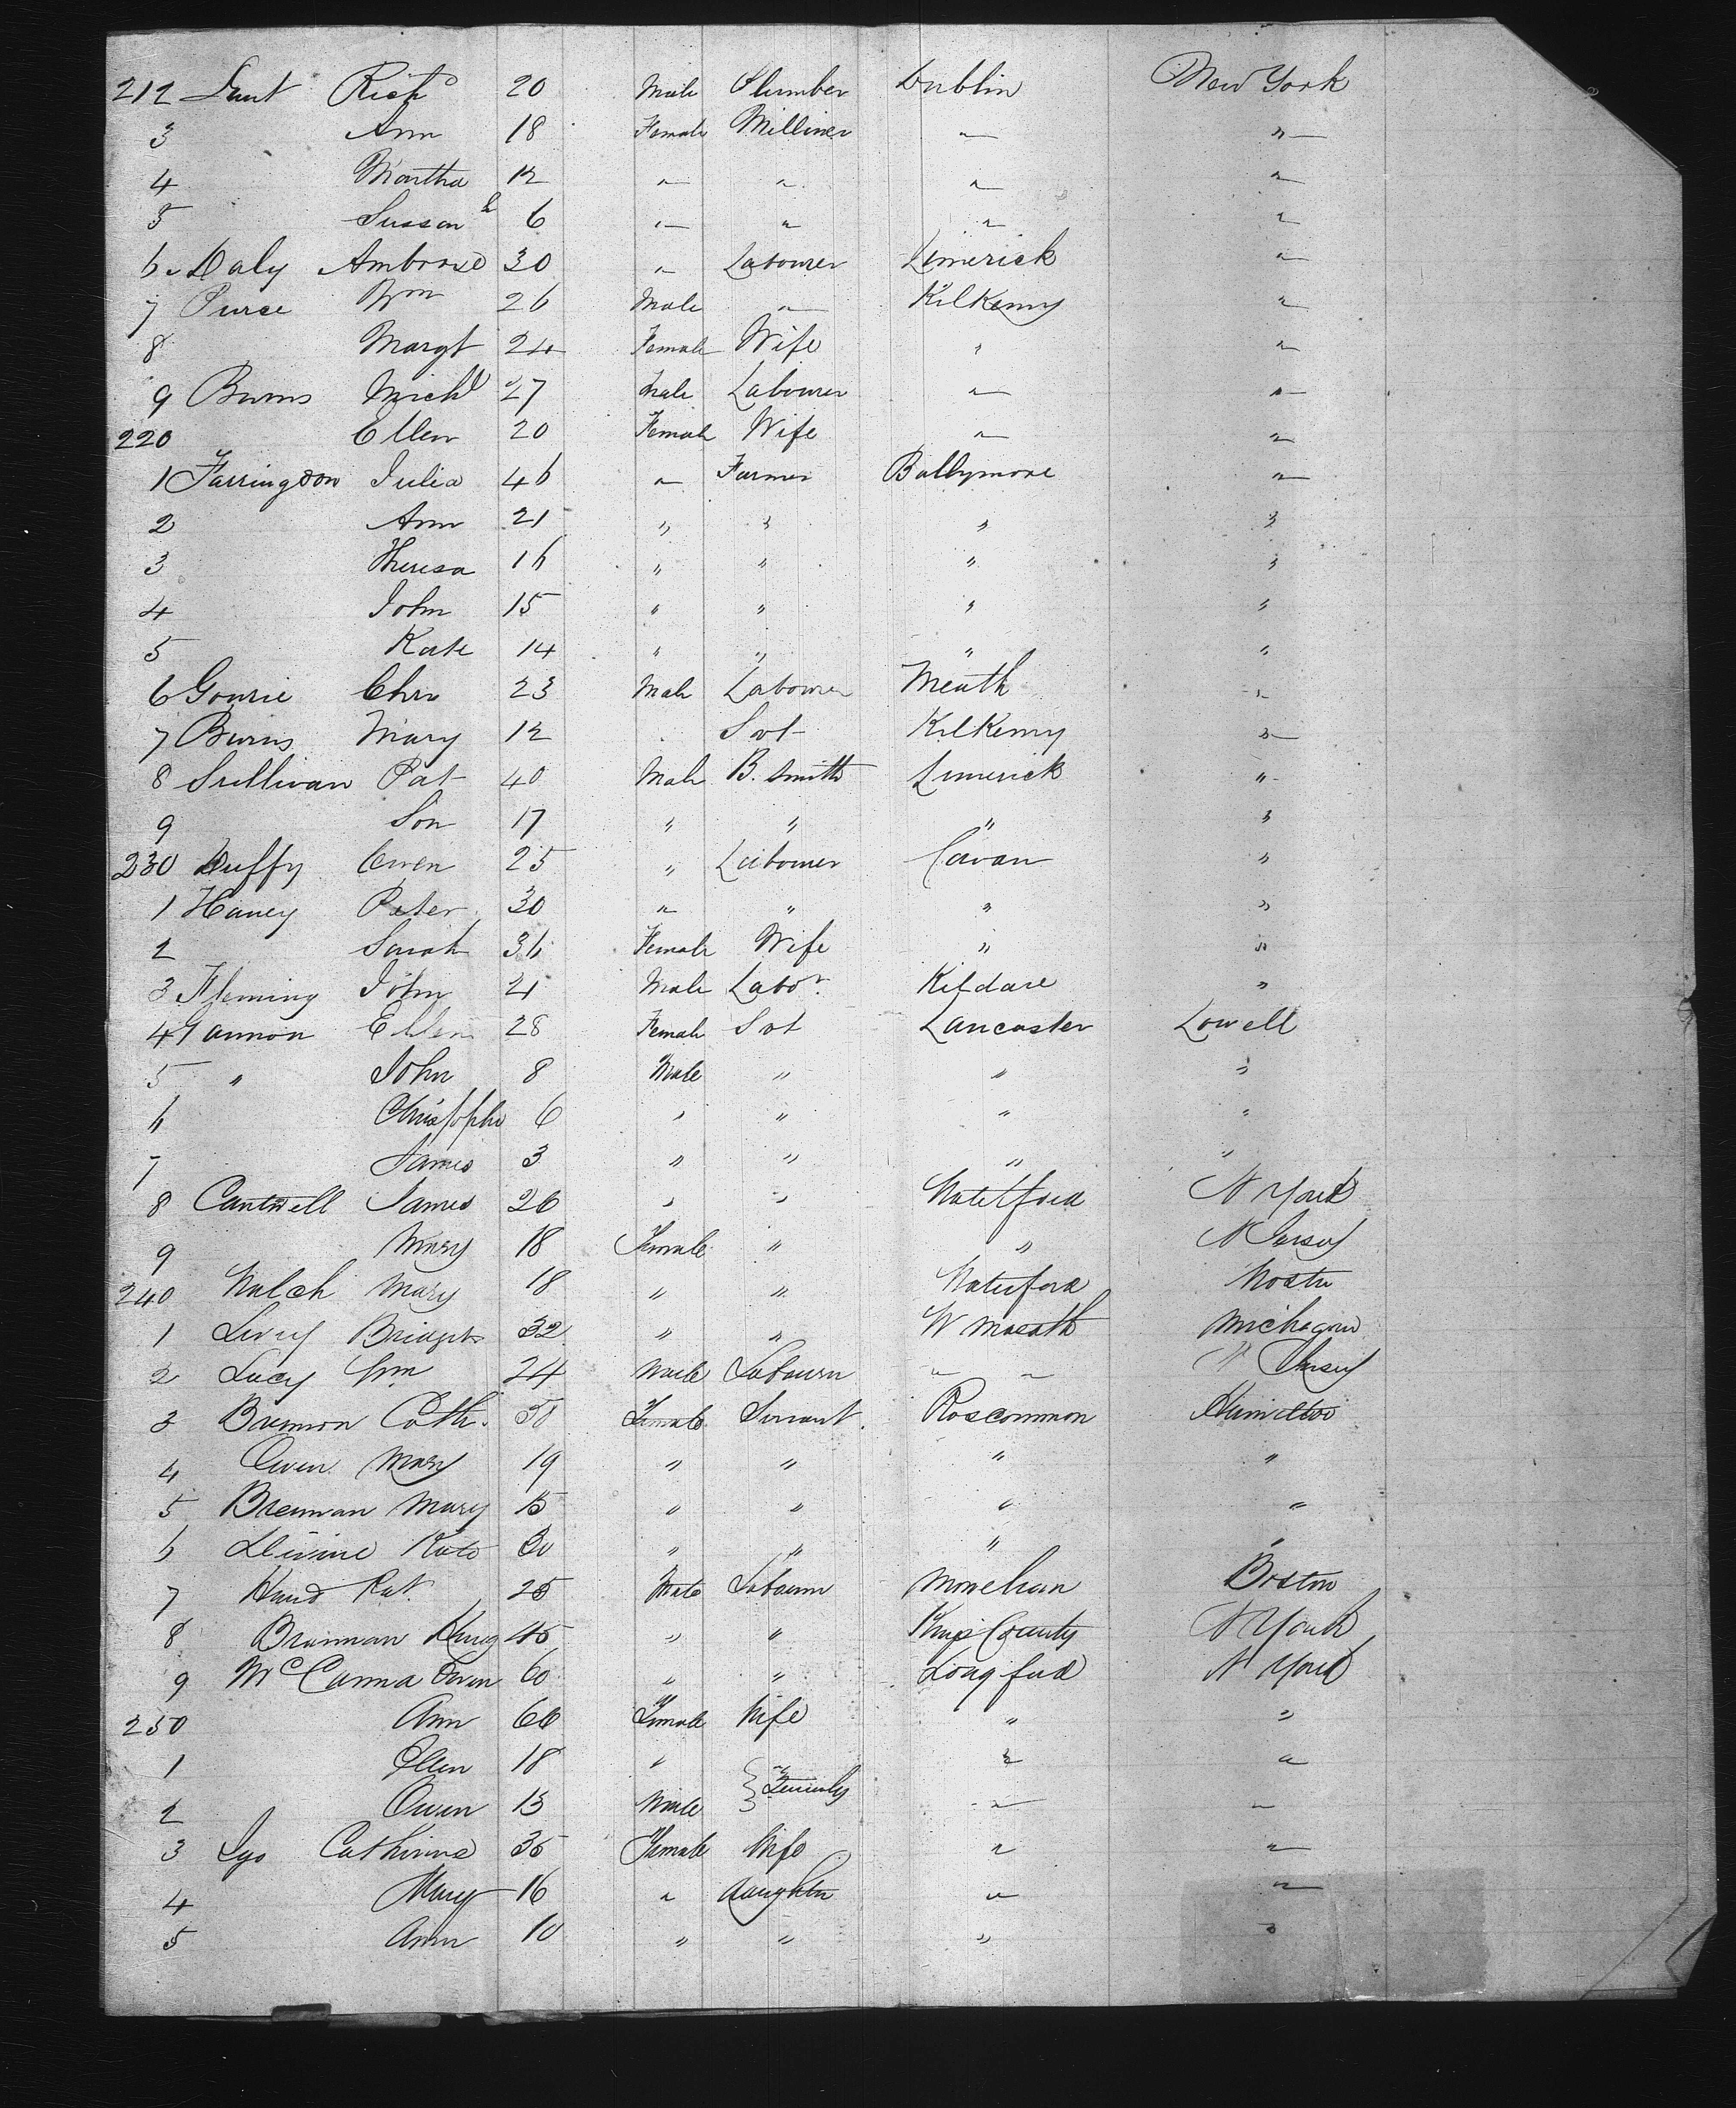 212 Richd 20 Male Plumber Dublin New York
3 Ann 18 Female Milliner " "
4 Martha 12 " " " "
5 Sussan 6 " " " "
6 Daly Ambrose 30 " Labourer Limerick "
7 Purce Wm 26 Male " Kilkenny "
8 Margt 24 Female Wife " "
9 Burns Michl 27 Male Labourer " "
220 Ellen 20 Female Wife " "
1 Farringdon Julia 46 " Farmer Ballymore "
2 Ann 21 " " " "
3 Theresa 16 " " " "
4 John 15 " " " "
5 Kate 14 " " " "
6 Gowrie Chrs 23 Male Labourer Meath "
7 Burns Mary 12 Svt Kilkenny "
8 Sullivan Pat 40 Male B. Smith Limerick "
9 Son 17 " " " "
230 Duffy Owen 25 " Labourer Cavan "
1 Haney Peter 30 " " " "
2 Sarah 36 Female Wife " "
3 Fleming John 21 Male Labor. Kildare "
4 Gannon Ellen 28 Female Svt Lancaster Lowell
5 " John 8 Male " " "
6 Christophe 6 " " " "
7 James 3 " " " "
8 Cantwell James 26 " " N York
9 Mary 18 Female " " N Jersey
240 Walch Mary 18 " " Waterford
1 Bridget 32 " " W Meath Michegan
2 Lacy Wm 24 Male Labourer " " N Jersey
3 Brennon Cath. 50 Female Servant Roscommon Hamilton
4 Owen Mary 19 " " " "
5 Brennan Mary 15 " " " "
6 Devine Kate 30 " " " "
7 Hand Pat 25 Male Labourer Monehan Boston
8 Brannan 45 " " Kings County N York
9 McCanna Owen 60 " " Longford N York
250 Ann 66 Female Wife " "
1 Ellen 18 " " "
Family
2 Owen 13 Male " "
3 Catherine 35 Female Wife " "
4 Mary 16 " daughter " "
5 Ann 10 " " " "